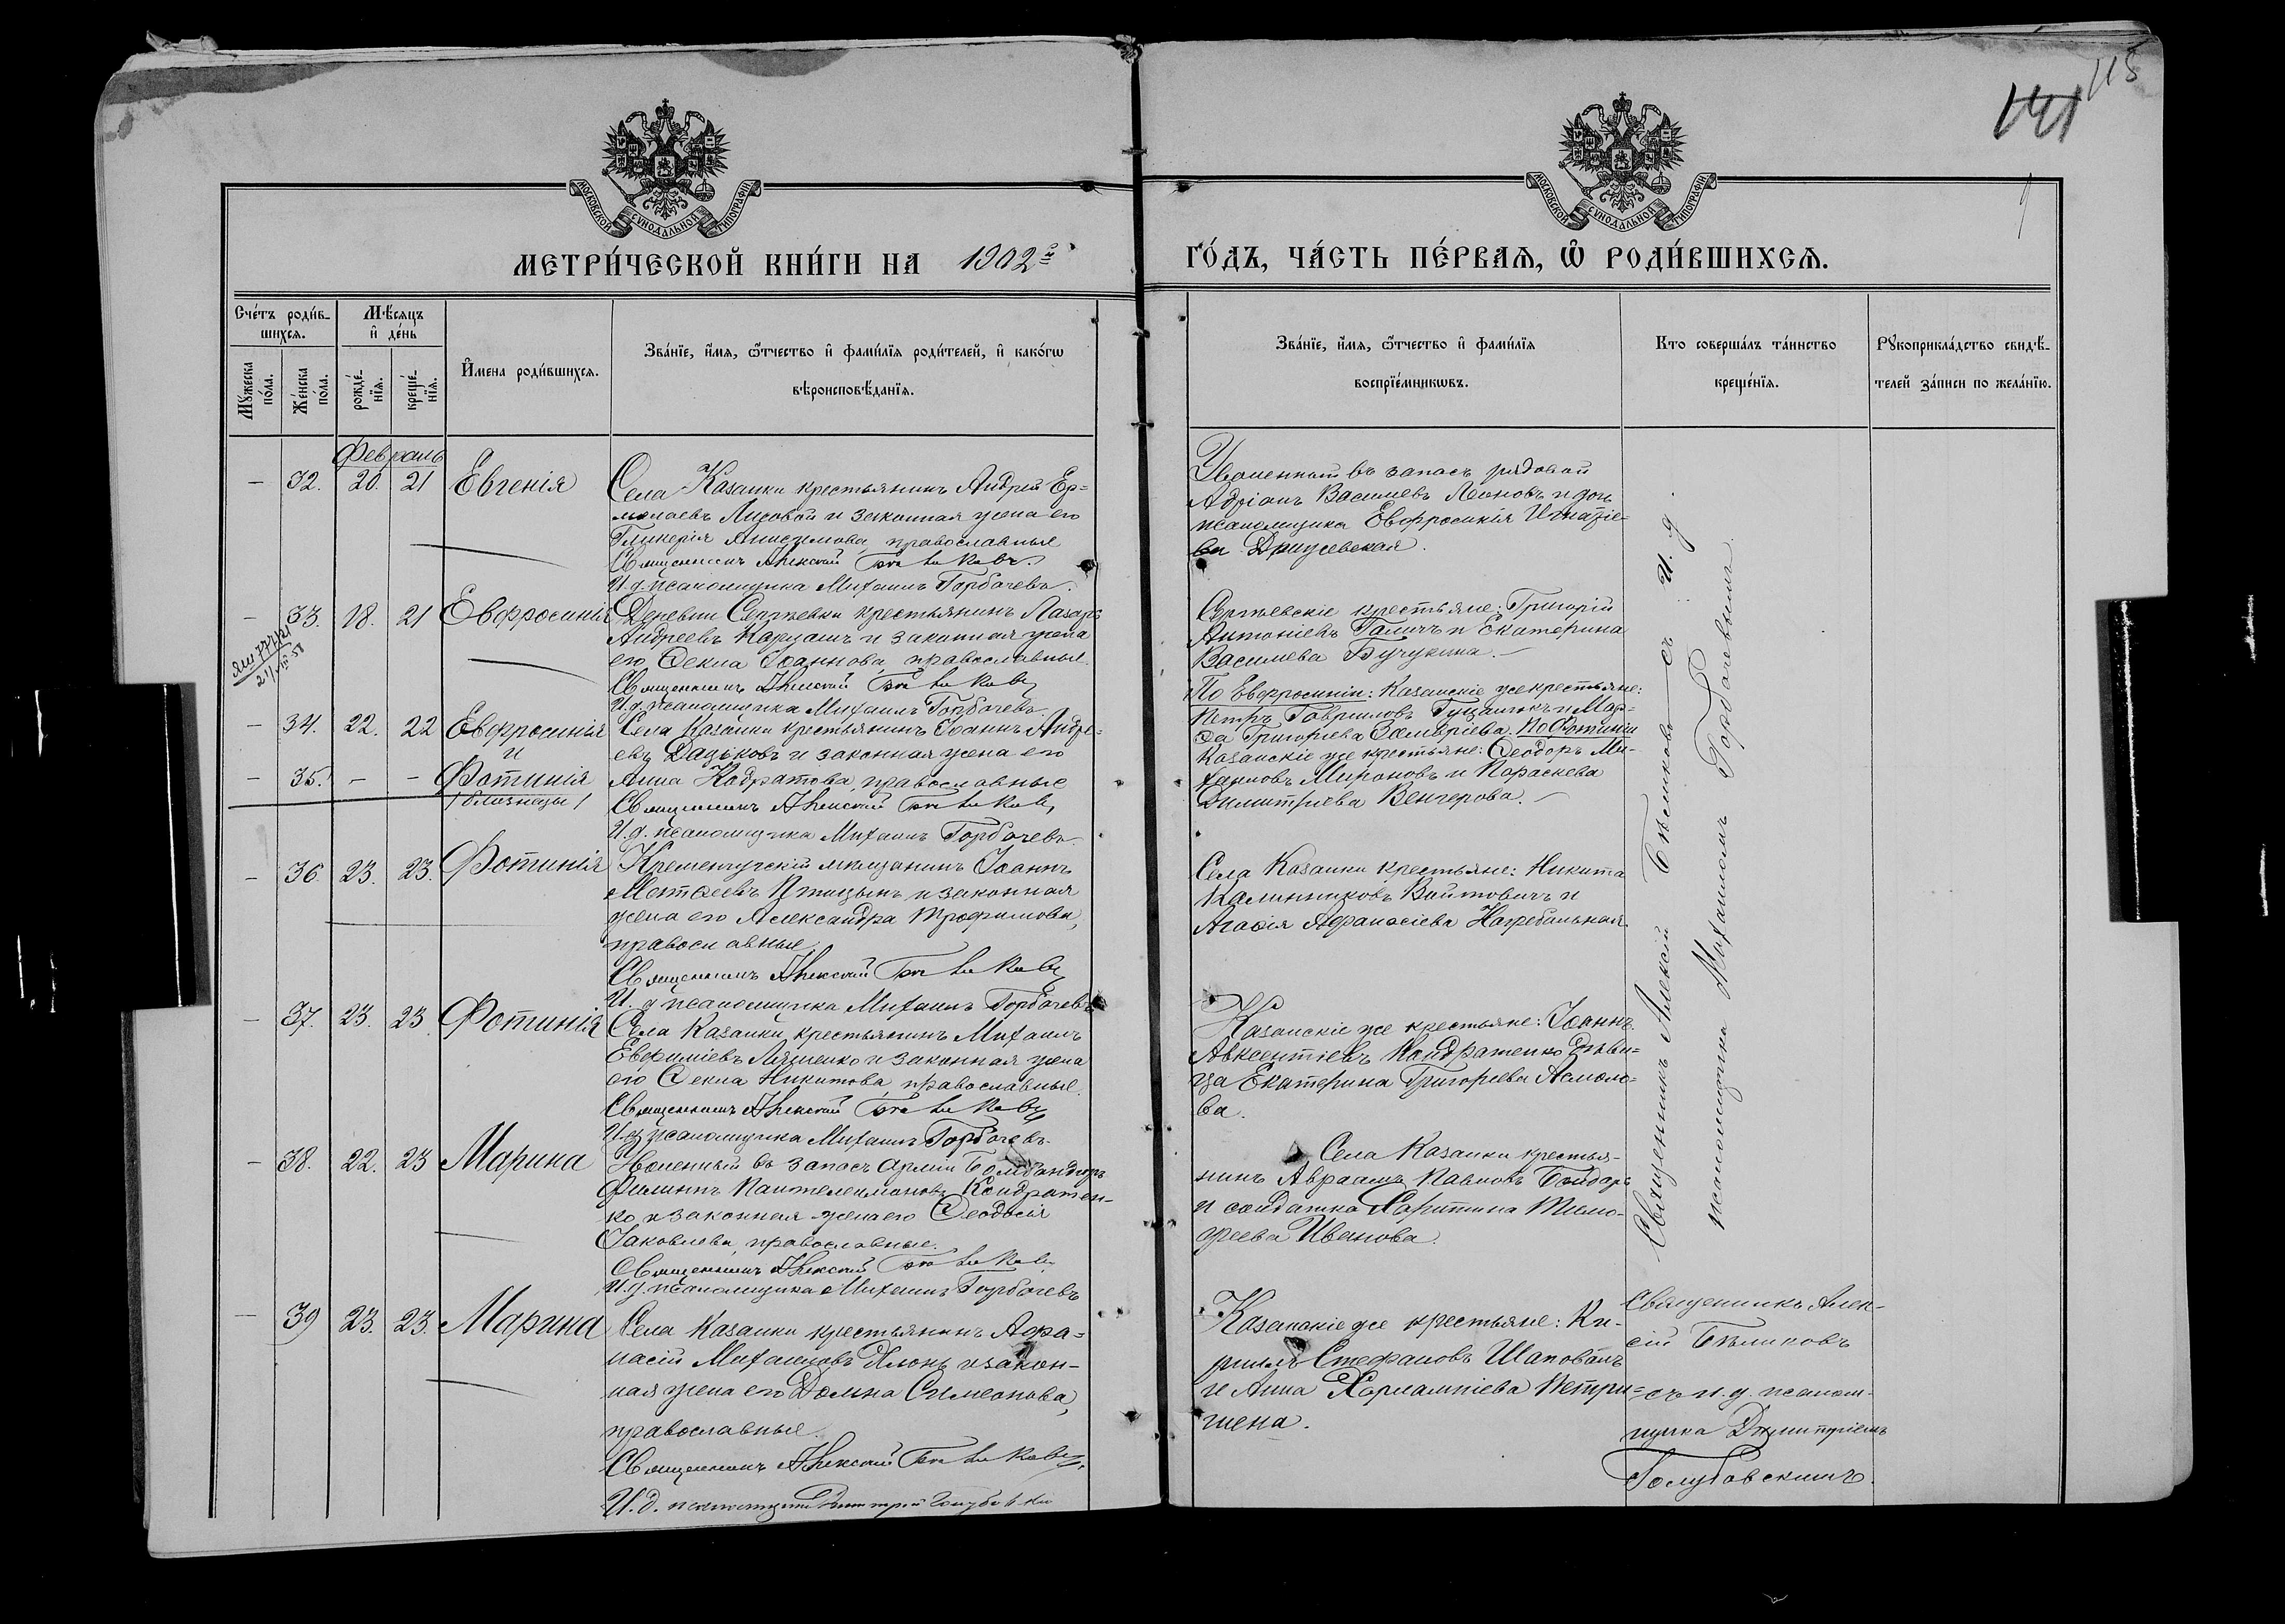 115
141
МОСКОВСКОЙ СѴНОДАЛЬНОЙ ТИПОГРАФІИ
МОСКОВСКОЙ СѴНОДАЛЬНОЙ ТИПОГРАФІИ
МЕТРИ́ЧЕСКОЙ КНИ́ГИ НА 1902 г.
ГО́ДЪ, ЧА́СТЬ ПЕ́РВАѦ, Ѡ҆ РОДИ́ВШИХСѦ.
Сче́тъ роди́в-
шихсѧ.
Мѣ́сяцъ
и҆ де́нь
Мꙋ́жеска по́ла.
Же́нска по́ла.
рожде́-нїѧ.
креще́-нїѧ.
И҆́мена роди́вшихсѧ.
Зва́нїе, и҆́мѧ, ѻ҆́тчество и҆ фами́лїѧ роди́телей, и҆ како́гѡ
вѣроисповѣ́данїѧ.
Зва́нїе, и҆́мѧ, ѻ҆́тчество и҆ фами́лїѧ
воспрїе́мникѡвъ.
Кто соверша́лъ та́инство
креще́нїѧ.
Рꙋкоприкла́дство свидѣ́-
телей за́писи по жела́нїю.
Февраль
— 32. 20. 21 Евгенія
Села Казанки крестьянинъ Андрей Ер-
молаевъ Лисовой и законная жена его
Гликерія Анисимова, православные
Священникъ Алексій Бѣликовъ.
И.д. псаломщика Михаилъ Горбачевъ.
Уволенный въ запасъ рядовой
Адріанъ Василіевъ Леоновъ и дочь
псаломщика Евфросинія Игнатіе-
ва
— 33. 18. 21 Евфросинія
Деревни Сергѣевки крестьянинъ Лазарь
Андреевъ и законная жена
его Ѳекла Іоаннова, православные.
Священникъ Алексій Бѣликовъ
И.д. псаломщика Михаилъ Горбачевъ
Сергѣевскіе крестьяне: Григорій
Антоніевъ Галичъ и Екатерина
Василіева Бучукина.
— 34. 22. 22 Евфросинія
и
— 35. — — Фотинія
/близнецы/
Села Казанки крестьянинъ Іоаннъ Андре-
евъ Дацьковъ и законная жена его
Анна Кодратова, православные
Священникъ Алексій Бѣликовъ
И.д. псаломщика Михаилъ Горбачевъ.
По Евфросиніи: Казанскіе же крестьяне:
Петръ Гавриловъ и Мар-
ѳа Григорьева. По Фотиніи
Казанскіе же крестьяне: Ѳеодоръ Ми-
хаиловъ Мироновъ и Параскева
Димитріева Венгерова.
— 36. 23. 23. Фотинія
Кременчугскій мѣщанинъ Іоаннъ
Матѳеевъ Птицынъ и законная
жена его Александра Трофимова,
православные
Священникъ Алексій Бѣликовъ
И.д. псаломщика Михаилъ Горбачевъ
Села Казанки крестьяне: Никита
Калинниковъ Войтовичъ и
Агафія Афанасіева Нагребальная
— 37. 23. 23 Фотинія
Села Казанки, крестьянинъ Михаилъ
Евфиміевъ Ляшенко и законная жена
его Ѳекла Никитова, православные.
Священникъ Алексій Бѣликовъ
И.д. псаломщика Михаилъ Горбачевъ.
Казанскіе же крестьяне: Іоаннъ
Авксентіевъ Кондратенко дѣви-
ца Екатерина Григорьева Асмоло-
ва.
— 38. 22. 23 Марина
Уволенный въ запасъ арміи Бомбандиръ
Филиппъ Пантелеимоновъ Кондратен-
ко и законная жена его Ѳеодосія
Іаковлева, православные.
Священникъ Алексій Бѣликовъ
И.д. псаломщика Михаилъ Горбачевъ
Села Казанки крестья-
нинъ Авраамъ Павловъ Бондарь
и солдатка Харитина Тимо-
феева Иванова.
Священникъ Алексій Бѣликовъ съ И. д.
псаломщика Михаиломъ Горбачевымъ.
— 39 23. 23. Марина
Села Казанки крестьянинъ Аѳа-
насій Михаиловъ и закон-
ная жена его Домна Симеонова,
православные.
Священникъ Алексій Бѣликовъ.
И.д. псаломщика Димитрій Голубовскій
Казанскіе же крестьяне: Ки-
риллъ Стефановъ Шаповалъ
и Анна Харлампіева Петри-
шена.
Священникъ Алек-
сій Бѣликовъ
съ и.д. псалом-
щика Димитріемъ
Голубовскимъ.